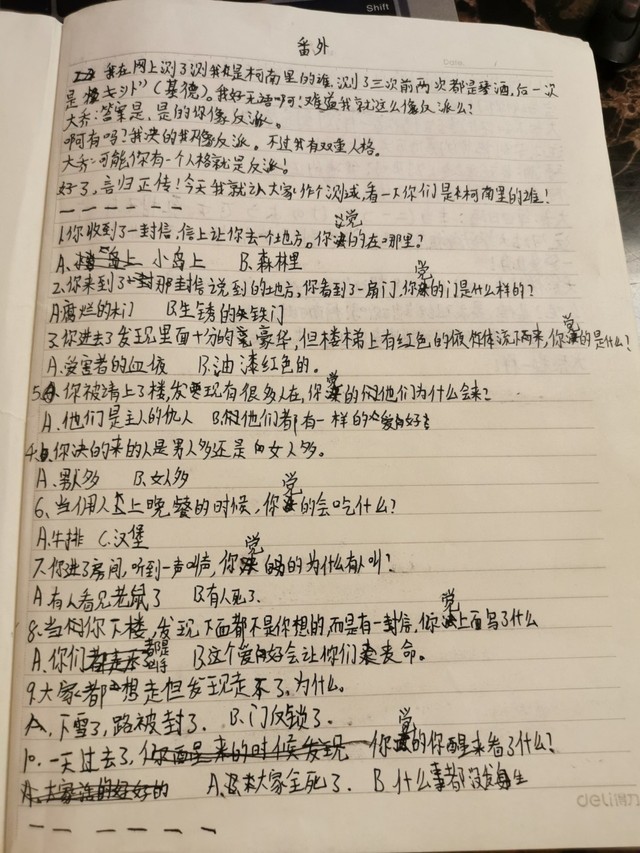 Shift
番外
Date.
我在网上测了测我是柯南里的谁,测了三次前两次都是琴酒,后一次
是 キッド”(基德)。我好无语啊!难道我就这么像反派么?
大乔:答案是,是的你像反派。
啊有吗?我决的我不像反派。不过我有双重人格。
大乔:可能你有一个人格就是反派!
好了,言归正传!今天我就让大家作个测试,看一下你们是柯南里的谁!
— — — — — —
1.你收到了一封信,信上让你去一个地方。你觉的在哪里?
A、小岛上 B.森林里
2.你来到了那封信说到的地方,你看到了一扇门,你觉的门是什么样的?
A腐烂的木门 B.生锈的铁门
3.你进去了发现里面十分的豪华,但楼梯上有红色的液体流下来,你觉的是什么?
A.受害者的血液 B.油漆红色的。
5.你被请上了楼,发现有很多人在,你觉的他们为什么会来?
A.他们是主人的仇人 B.他们都有一样的爱好
4.你决的来的人是男人多还是女人多。
A.男人多 B.女人多
6、当佣人上晚餐的时候,你觉的会吃什么?
A.牛排 C.汉堡
7.你进了房间,听到一声叫声,你觉的为什么有人叫?
A有人看见老鼠了 B.有人死了.
8.当你下楼,发现下面都不是你想的,而是有一封信,你觉上面写了什么
A.你们都是凶手 B.这个爱好会让你们丧命。
9.大家都想走但发现走不了。为什么。
A.下雪了,路被封了. B.门锁了.
10.一天过去了,你觉的你醒来看了什么?
A.大家全死了. B.什么事都没发生
deli得力
— — — — —